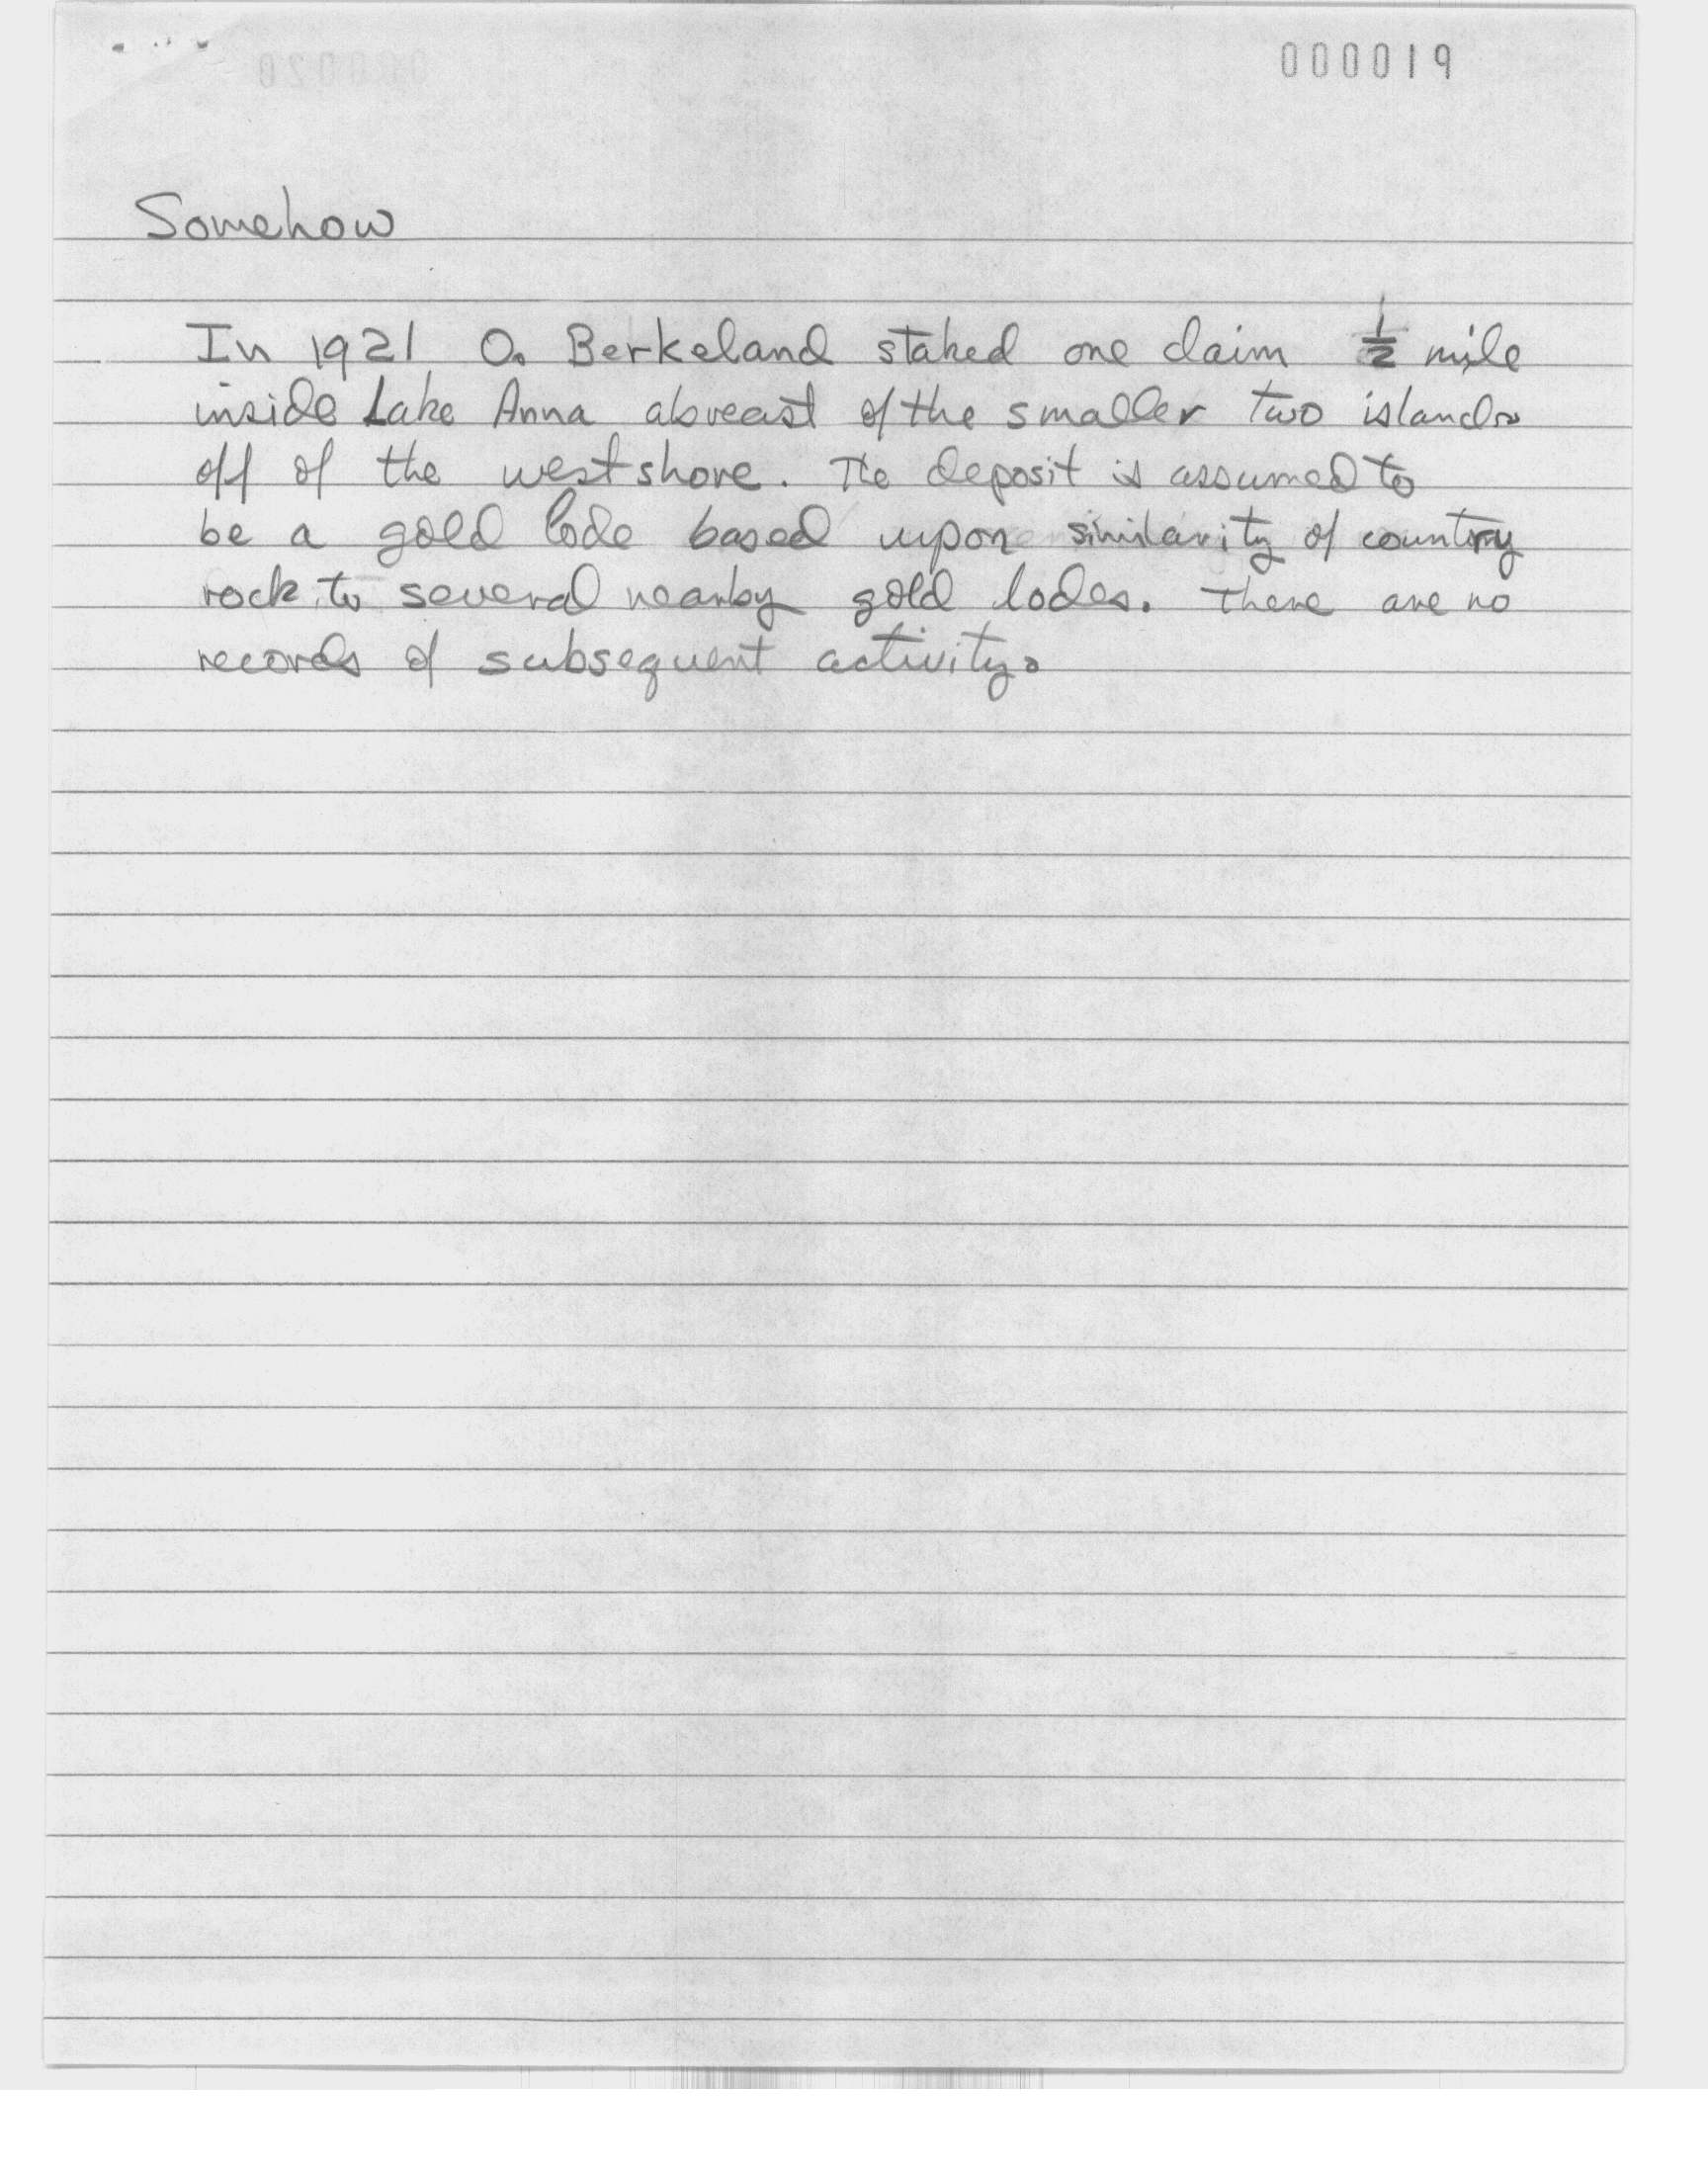 000019
Somehow
In 1921 O. Berkeland staked one claim 1/2 mile
inside Lake Anna abreast of the smaller two islands
off of the west shore. The deposit is assumed to
be a gold lode based upon similarity of country
rock to several nearby gold lodes. There are no
records of subsequent activity.